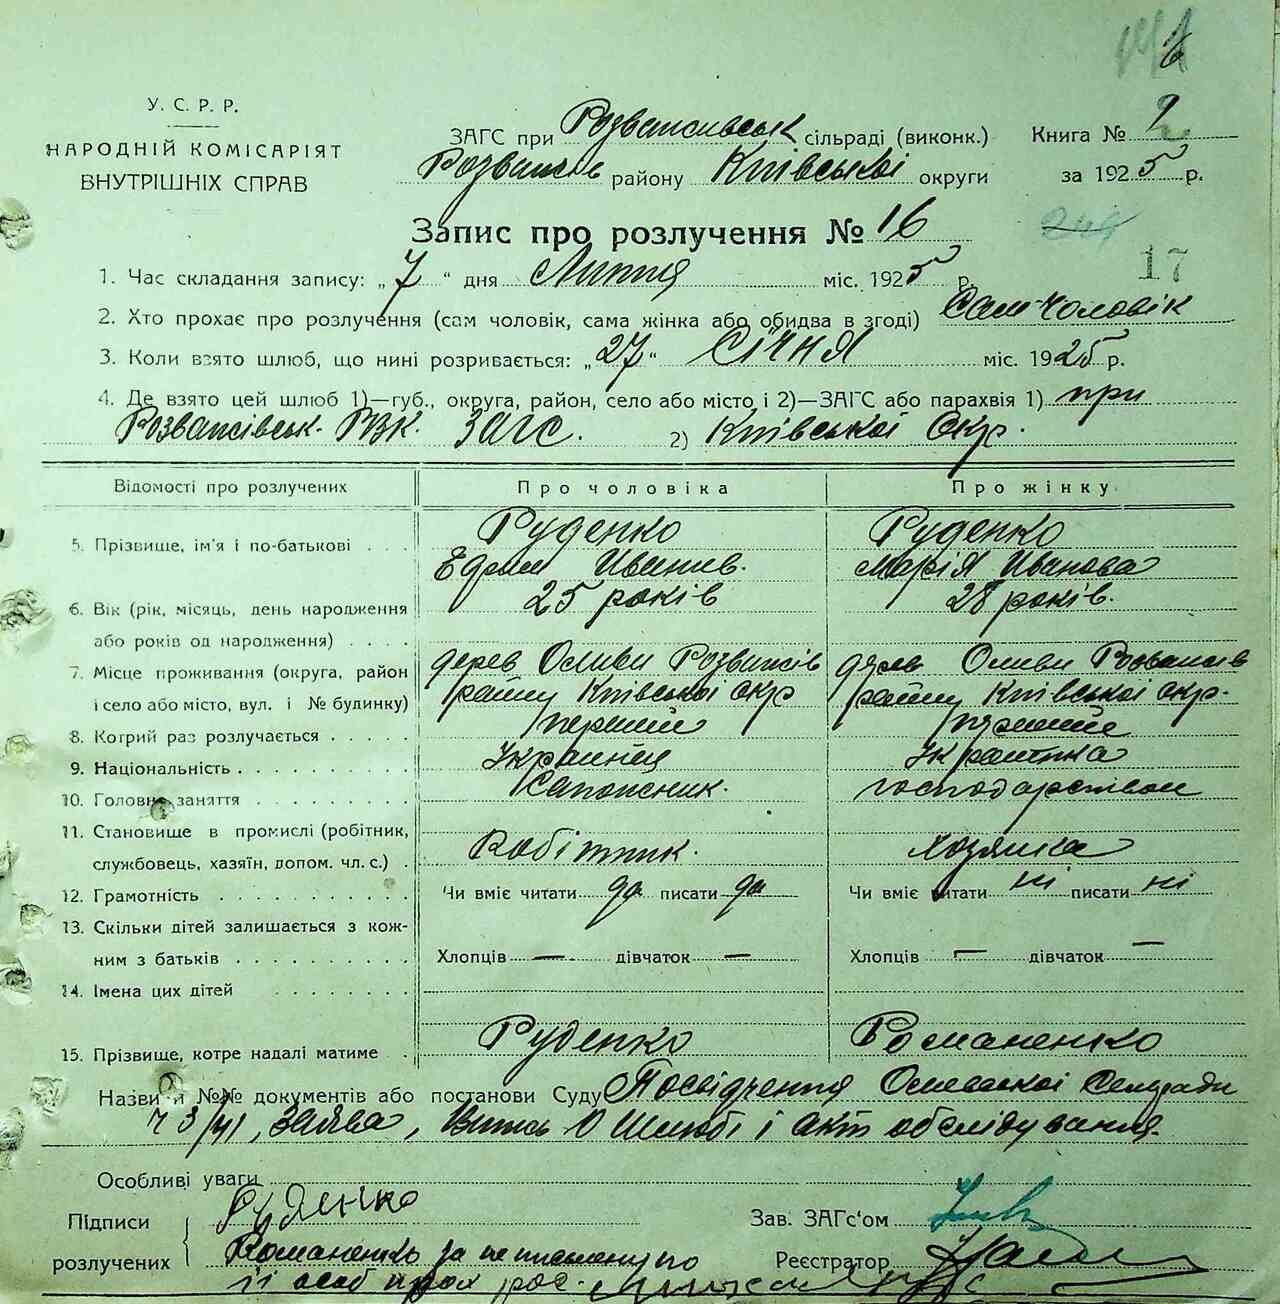 У. С. Р. Р.
НАРОДНІЙ КОМІСАРІЯТ
ВНУТРІШНІХ СПРАВ
ЗАГС при Розважівськ сільраді (виконк.)
Книга № 2
Розважів району Київської округи
за 1925 р.
Запис про розлучення № 16
17
1. Час складання запису: „7“ дня Липня міс. 1925 р.
2. Хто прохає про розлучення (сам чоловік, сама жінка або обидва в згоді) Сам чоловік
3. Коли взято шлюб, що нині розривається: „27“ СічНЯ міс. 1925 р.
4. Де взято цей шлюб 1)—губ., округа, район, село або місто і 2)—ЗАГС або парахвія 1) при
Розважівськ. РВК. ЗАГС. 2) Київської Окр.
Відомості про розлучених
Про чоловіка
Про жінку
5. Прізвище, ім'я і по-батькові
Руденко
Руденко
Иванів.
МаріЯ Иванова
6. Вік (рік, місяць, день народження
або років од народження)
25 років
28 років.
7. Місце проживання (округа, район
і село або місто, вул. і № будинку)
дерев Розважів
району Київської окр
дерев Розважів
району Київської окр.
8. Котрий раз розлучається
перший
перший
9. Національність
Українец
Українка
10. Головне заняття
Сапожник.
господарством
11. Становище в промислі (робітник,
службовець, хазяїн, допом. чл. с.)
Робітник.
Хозяйка
12. Грамотність
Чи вміє читати да писати да
Чи вміє читати ні писати ні
13. Скільки дітей залишається з кож-
ним з батьків
Хлопців — дівчаток —
Хлопців — дівчаток —
14. Імена цих дітей
15. Прізвище, котре надалі матиме
Руденко
Романенко
Назви й №№ документів або постанови Суду Посвідчення Сельради
Ч 3/41, Заява, Витись О Шлюбі і акт обслідування.
Особливі уваги
Підписи
розлучених
Руденко
Романенко за неписьменую
її особ прох рос.
Зав. ЗАГс'ом
Реєстратор